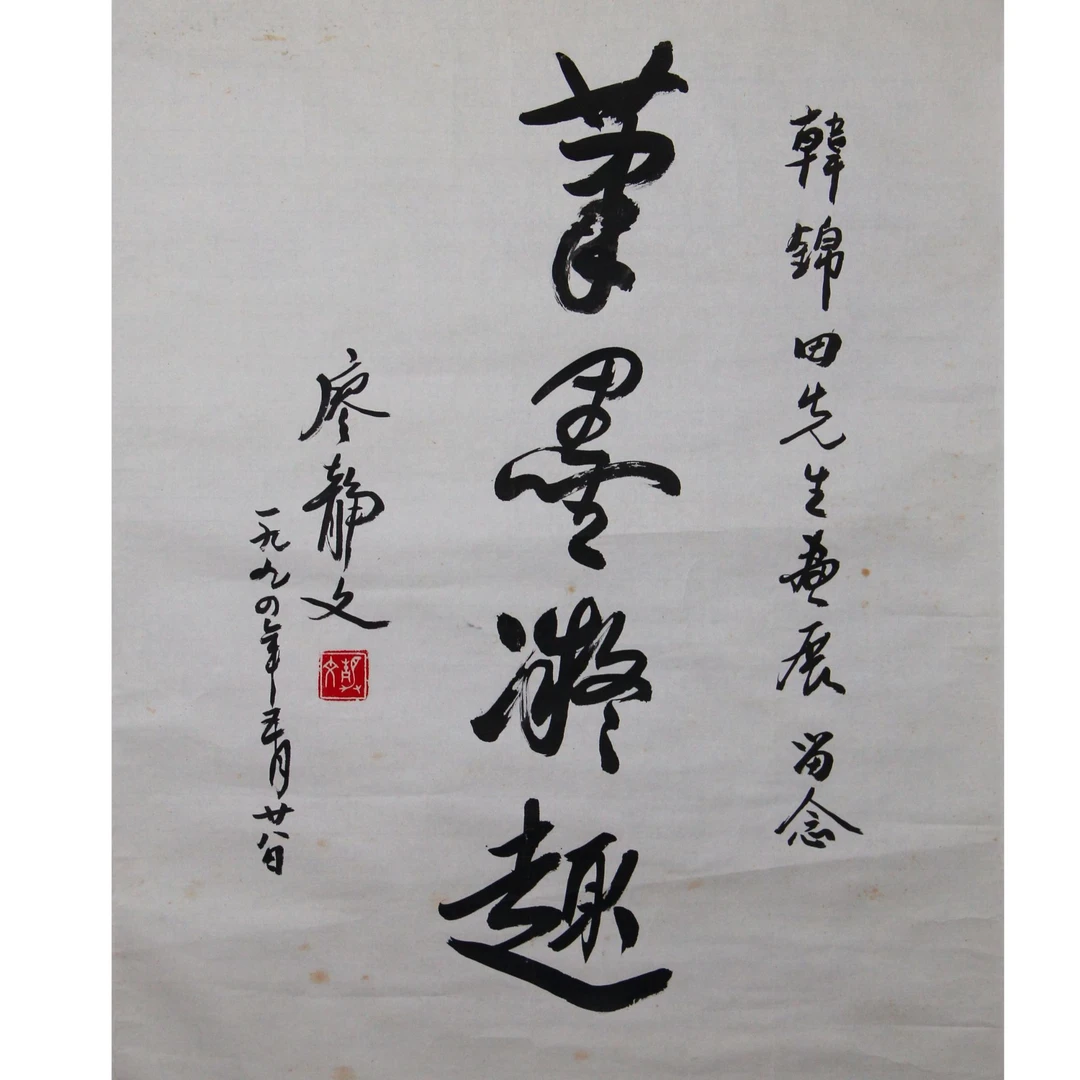 韓錦田先生畫展 留念
筆墨凝趣
廖静文
一九九四年五月廿八日
靜文